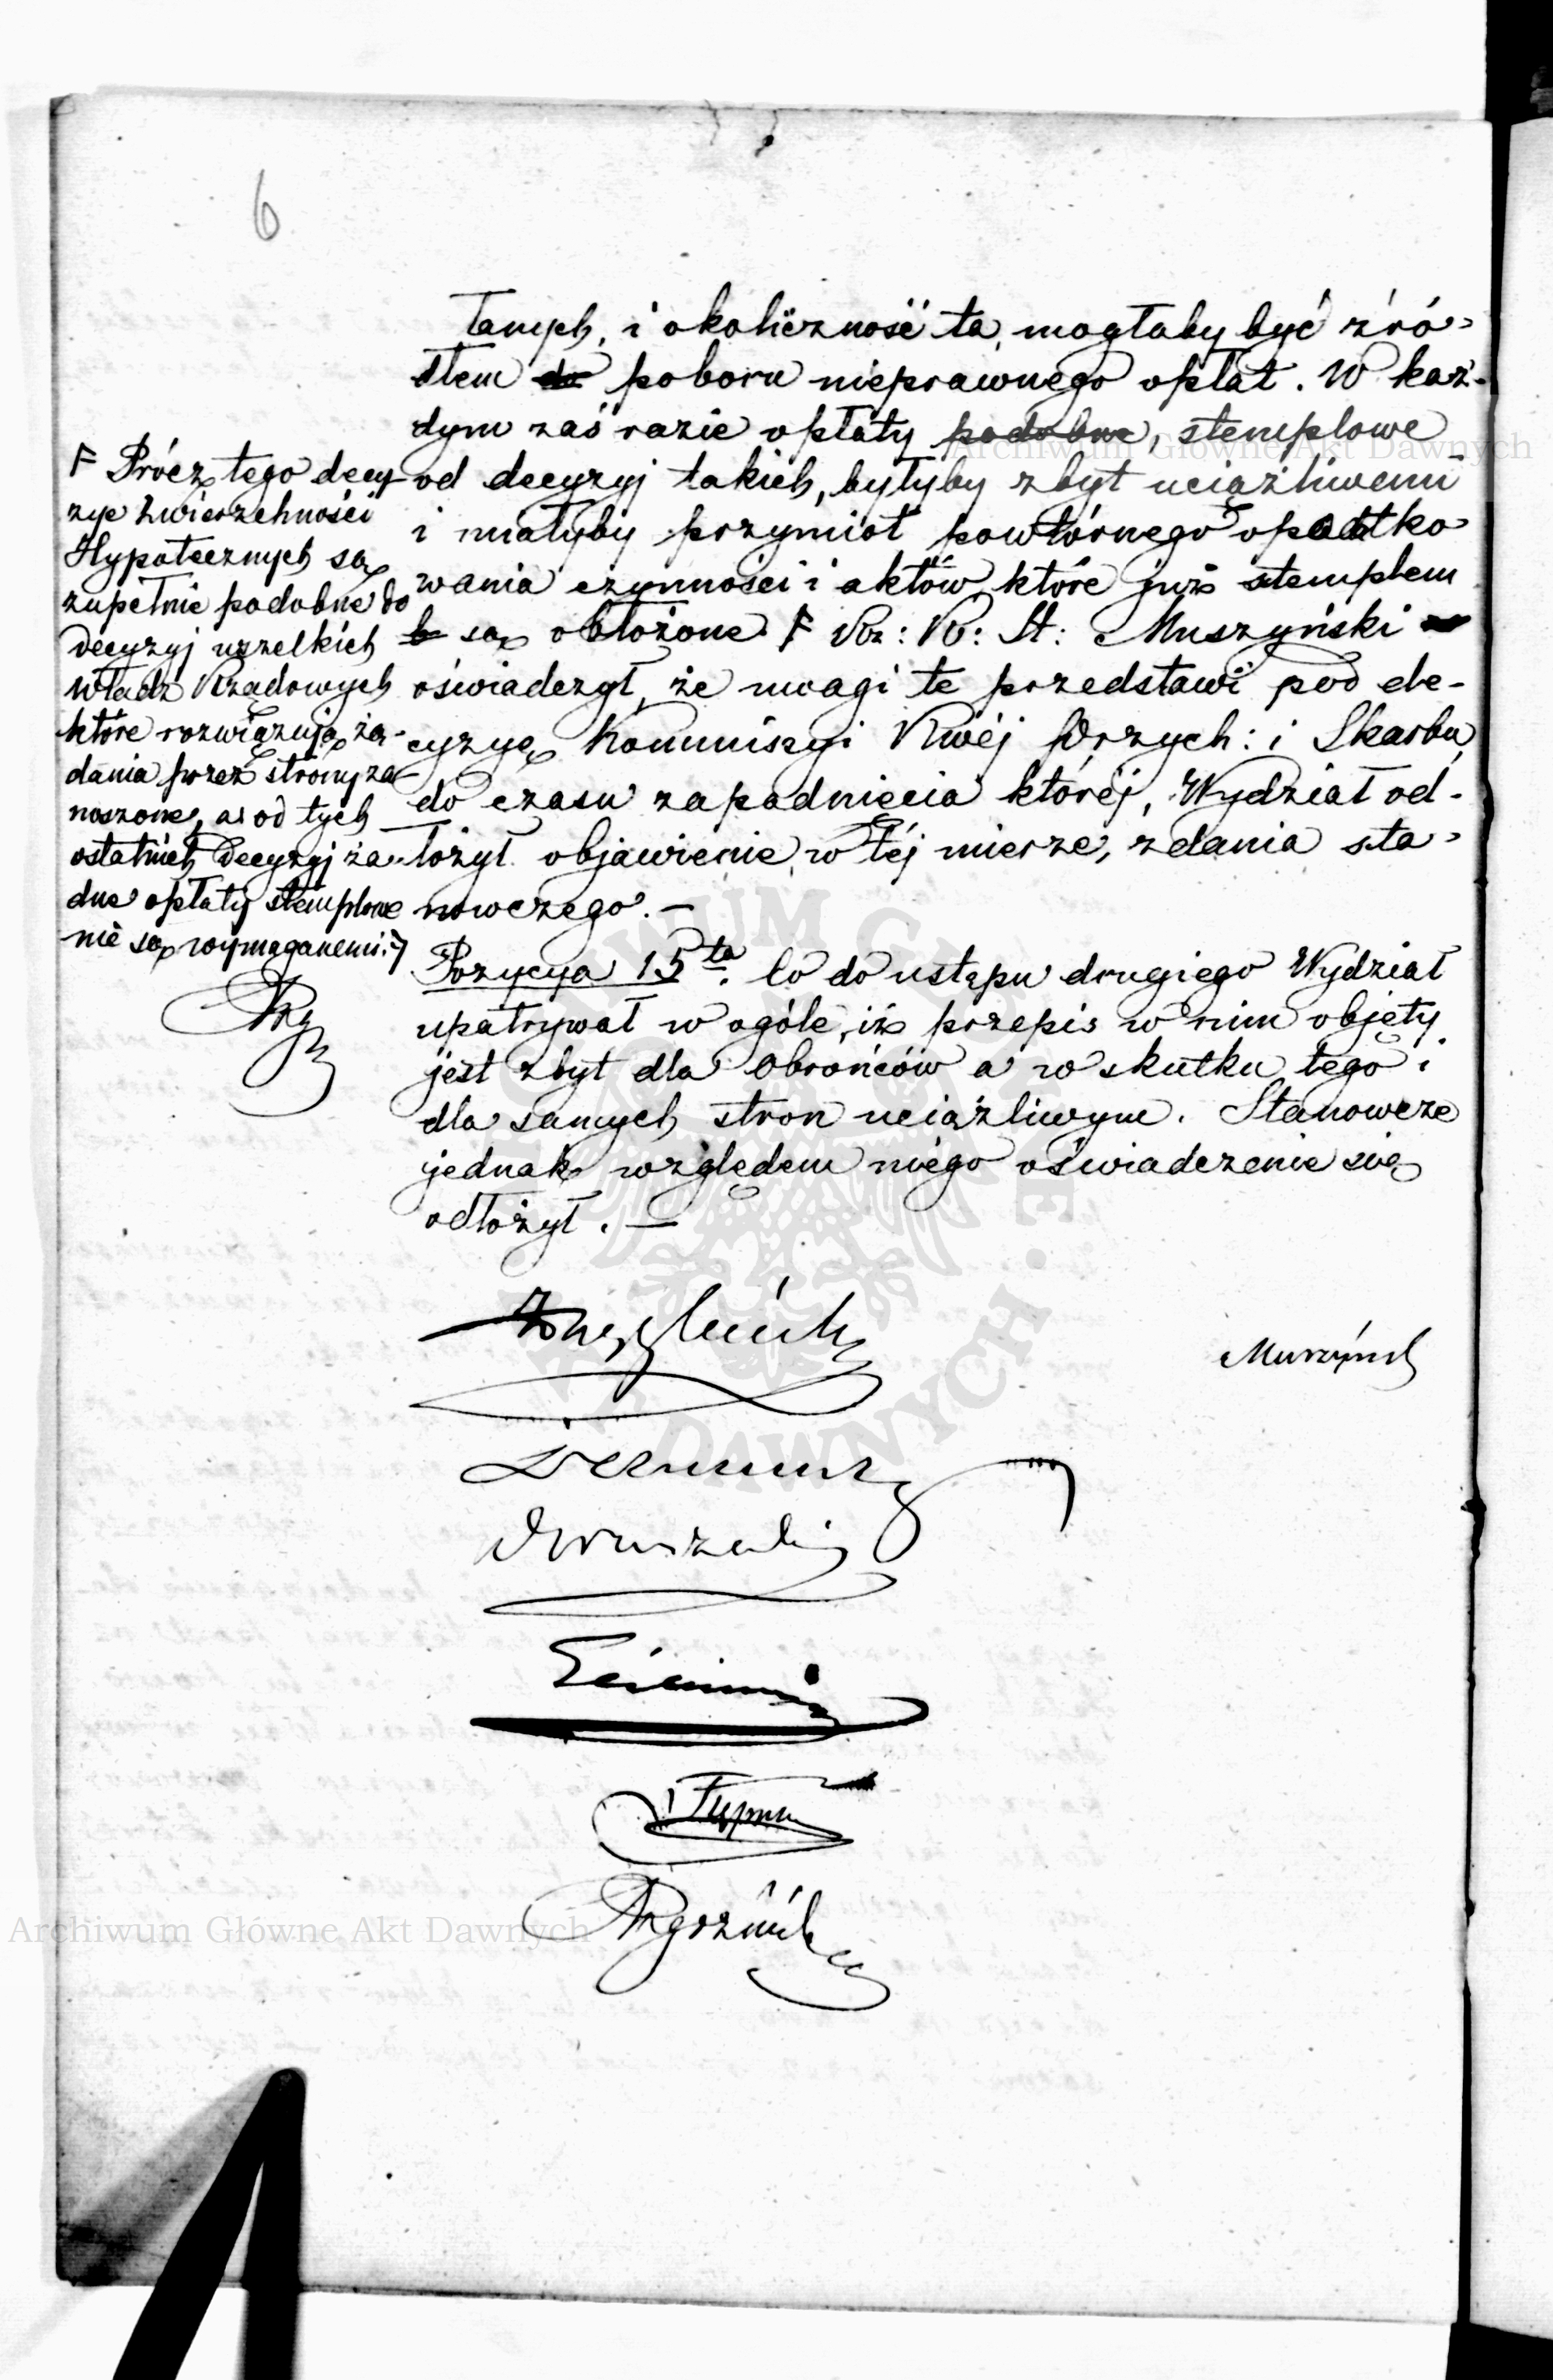 6
łanych, i okoliczność ta, mogłaby być źró-
dłem do poboru nieprawnego opłat. W każ-
dym zaś razie opłaty podobne, stemplowe
od decyzyj takich, byłyby zbyt uciążliwemi
i miałyby przymiot powtórnego opodatko-
wania czynności i aktów, które już stemplem
są obłożone. F Rz: R: St: Muszyński
oświadczył, że uwagi te przedstawi pod de-
cyzyę Kommissyi Rwéj Przych: i Skarbu,
do czasu zapadnięcia któréj, Wydział od-
łożył objawienie, w téj mierze, zdania sta-
nowczego. —
F Prócz tego decy-
zye Zwierzchności
Hypotecznych są
zupełnie podobne do
decyzyj wszelkich
Władz Rządowych
które rozwiązują żą-
dania przez strony za-
noszone, a od tych
ostatnich decyzyj ża-
dne opłaty stemplowe
nie są wymaganemi.
Pozycya 15ta. Co do ustępu drugiego Wydział
upatrywał w ogóle, iż przepis w nim objęty
jest zbyt dla Obrońców a w skutku tego i
dla samych stron uciążliwym. Stanowcze
jednak względem niego oświadczenie się
odłożył. —
Archiwum Główne Akt Dawnych
Archiwum Główne Akt Dawnych